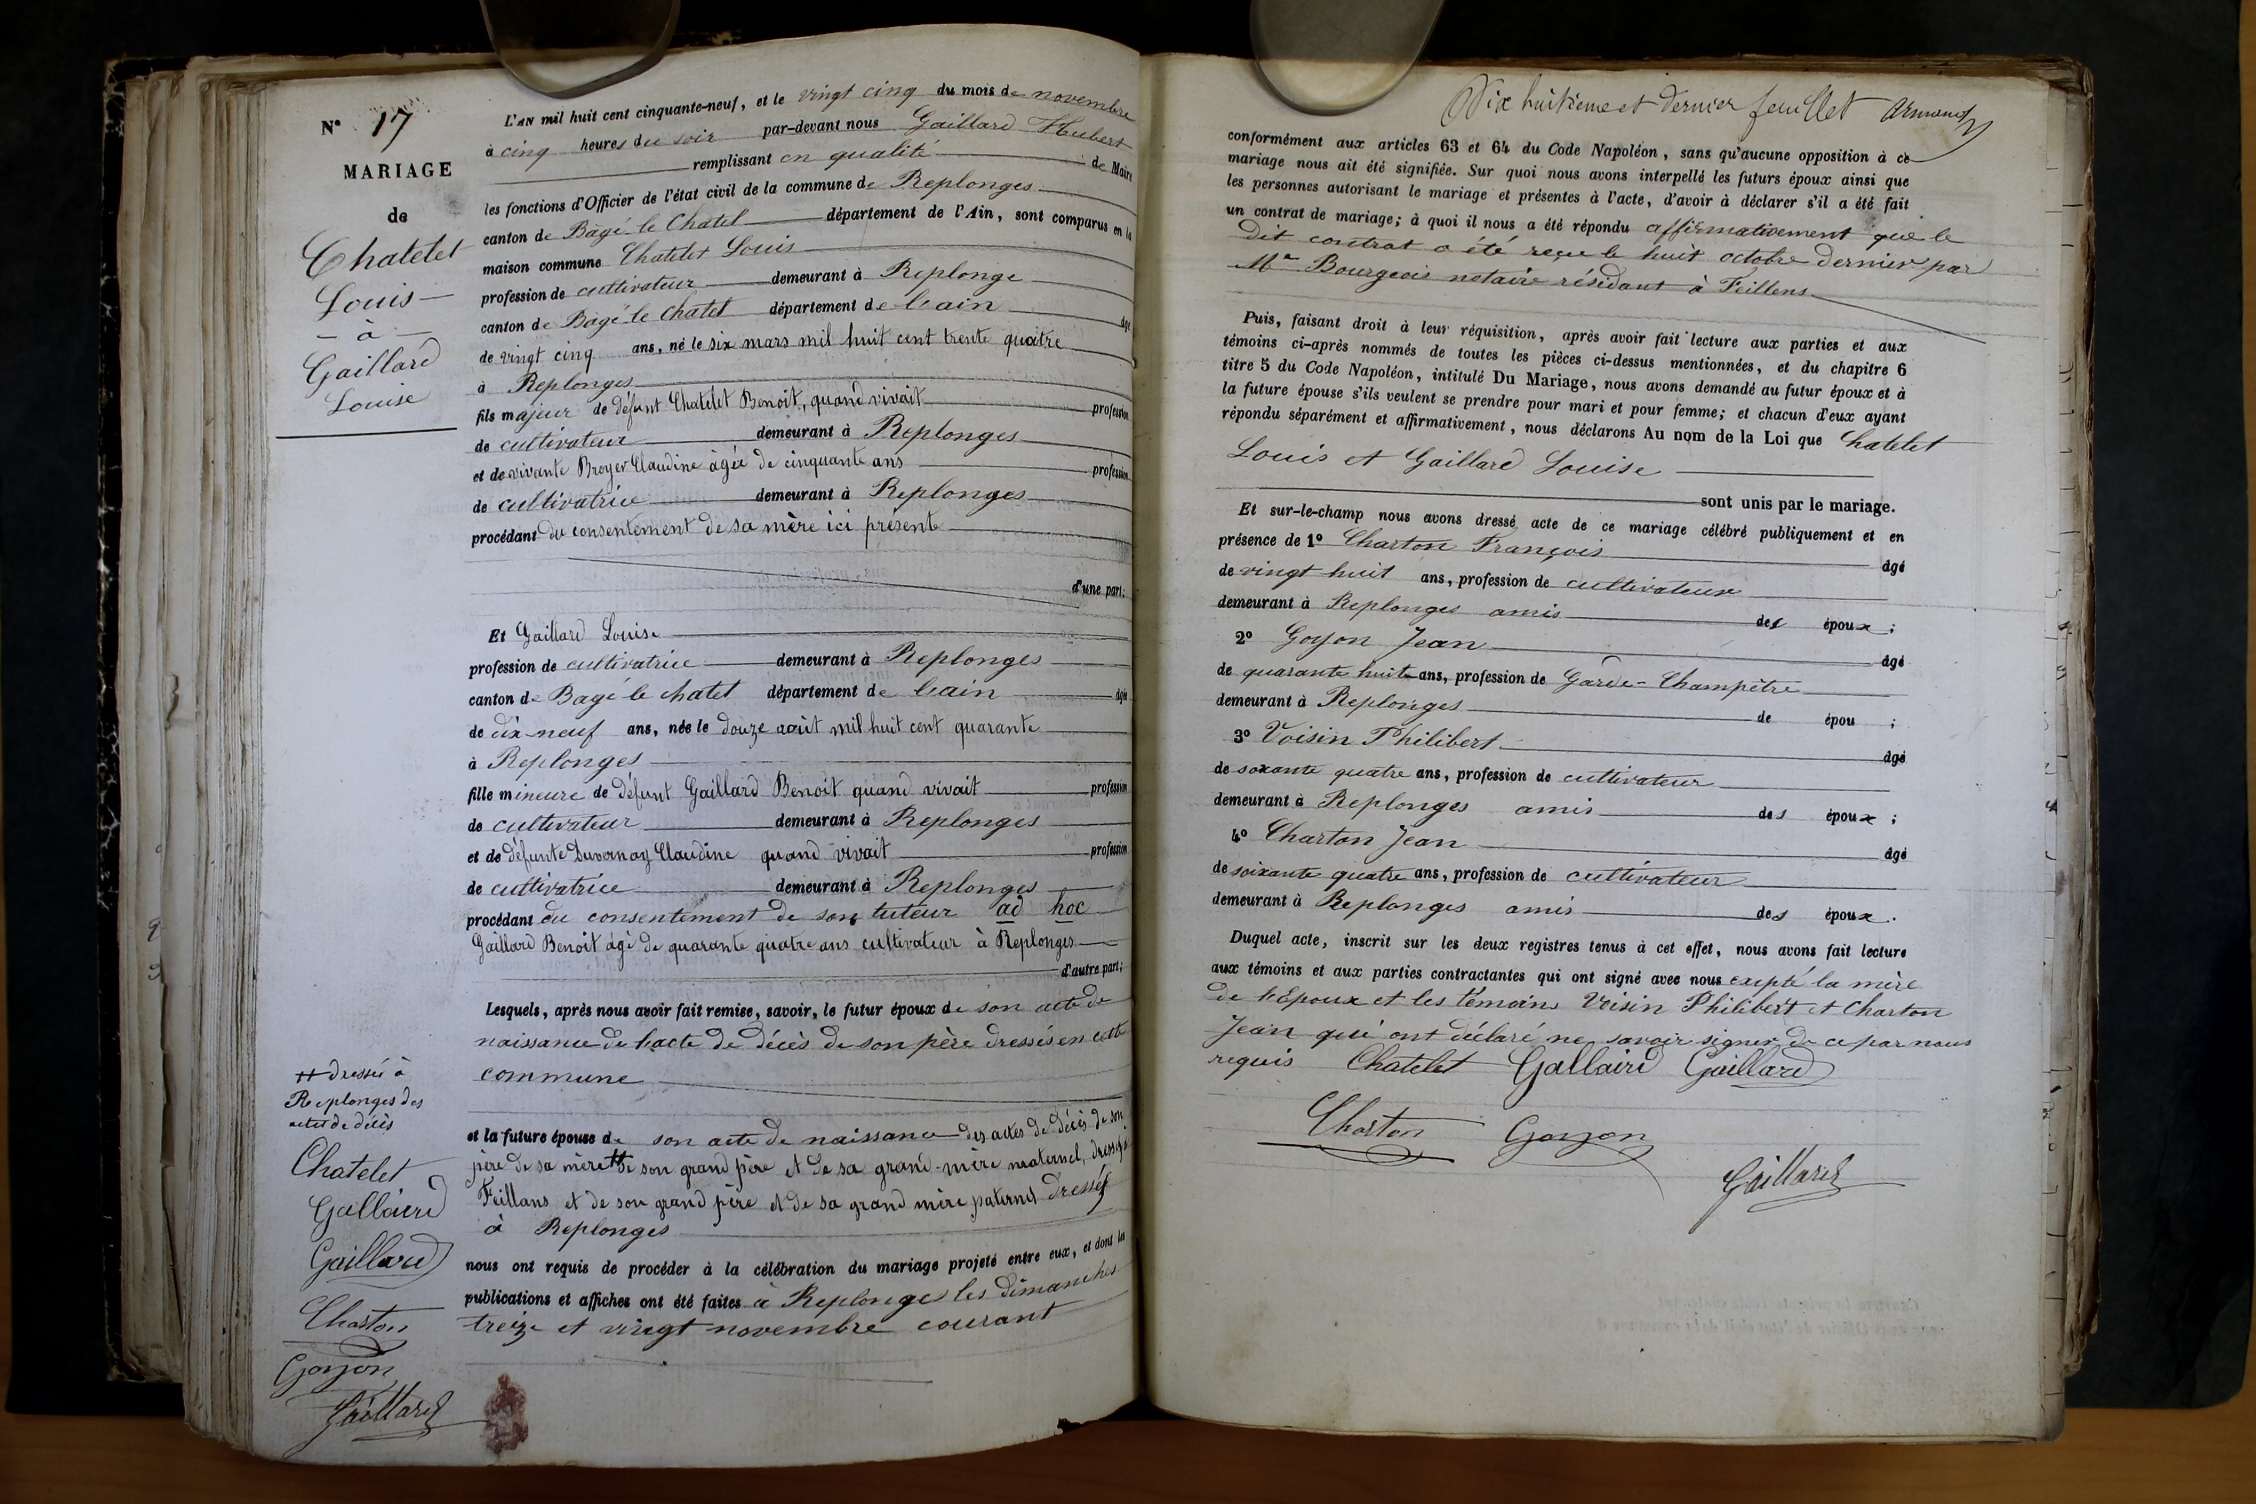 N° 17
MARIAGE
de
Chatelet
Louis
à
Gaillard
Louise
L'AN mil huit cent cinquante-neuf, et le vingt cinq du mois de novembre
à cinq heures du soir par-devant nous Gaillard Hubert
remplissant en qualité de Maire
les fonctions d'Officier de l'état civil de la commune de Replonges
canton de Bagé le Chatel département de l'Ain, sont comparus en la
maison commune Chatelet Louis
profession de cultivateur demeurant à Replonge
canton de Bagé le Chatel département de l'ain âgé
de vingt cinq ans, né le six mars mil huit cent trente quatre
à Replonges
fils majeur de défunt Chatelet Benoit, quand vivait profession
de cultivateur demeurant à Replonges
et de vivante Broyer Claudine âgée de cinquante ans profession
de cultivatrice demeurant à Replonges
procédant du consentement de sa mère ici présente
d'une part;
Et Gaillard Louise
profession de cultivatrice demeurant à Replonges
canton de Bagé le chatel département de l'ain âgée
de dix-neuf ans, née le douze août mil huit cent quarante
à Replonges
fille mineure de défunt Gaillard Benoit quand vivait profession
de cultivateur demeurant à Replonges
et de défunte Duvernay Claudine quand vivait profession
de cultivatrice demeurant à Replonges
procédant du consentement de son tuteur ad hoc
Gaillard Benoit âgé de quarante quatre ans cultivateur à Replonges
d'autre part;
Lesquels, après nous avoir fait remise, savoir, le futur époux de son acte de
naissance de l'acte de décès de son père dressés en cette
commune
et la future épouse de son acte de naissance des actes de décès de son
père de sa mère # de son grand père et de sa grand-mère maternel, dressés à
Feillans et de son grand père et de sa grand mère paternel dressés
à Replonges
nous ont requis de procéder à la célébration du mariage projeté entre eux, et dont les
publications et affiches ont été faites à Replonges les dimanches
treize et vingt novembre courant
# dressés à
Replonges des
actes de décès
Chatelet
Gallaird
Gaillard
Charton
Goyon
Gaillard
Dix huitieme et dernier feuillet
conformément aux articles 63 et 64 du Code Napoléon, sans qu'aucune opposition à ce
mariage nous ait été signifiée. Sur quoi nous avons interpellé les futurs époux ainsi que
les personnes autorisant le mariage et présentes à l'acte, d'avoir à déclarer s'il a été fait
un contrat de mariage; à quoi il nous a été répondu affirmativement que le
dit contrat a été reçu le huit octobre dernier par
Me Bourgeois notaire résidant à Feillens
Puis, faisant droit à leur réquisition, après avoir fait lecture aux parties et aux
témoins ci-après nommés de toutes les pièces ci-dessus mentionnées, et du chapitre 6
titre 5 du Code Napoléon, intitulé Du Mariage, nous avons demandé au futur époux et à
la future épouse s'ils veulent se prendre pour mari et pour femme; et chacun d'eux ayant
répondu séparément et affirmativement, nous déclarons Au nom de la Loi que Chatelet
Louis et Gaillard Louise
sont unis par le mariage.
Et sur-le-champ nous avons dressé acte de ce mariage célébré publiquement et en
présence de 1° Charton François âgé
de vingt huit ans, profession de cultivateur
demeurant à Replonges amis des époux;
2° Goyon Jean âgé
de quarante huit ans, profession de Garde-Champêtre
demeurant à Replonges de épou ;
3° Voisin Philibert âgé
de soxante quatre ans, profession de cultivateur
demeurant à Replonges amis des époux;
4° Charton Jean âgé
de soixante quatre ans, profession de cultivateur
demeurant à Replonges amis des époux.
Duquel acte, inscrit sur les deux registres tenus à cet effet, nous avons fait lecture
aux témoins et aux parties contractantes qui ont signé avec nous exepté la mère
de l'Epoux et les témoins Voisin Philibert et Charton
Jean qui ont déclaré ne savoir signer de ce par nous
requis Chatelet Gallaird Gaillard
Charton Goyon
Gaillard